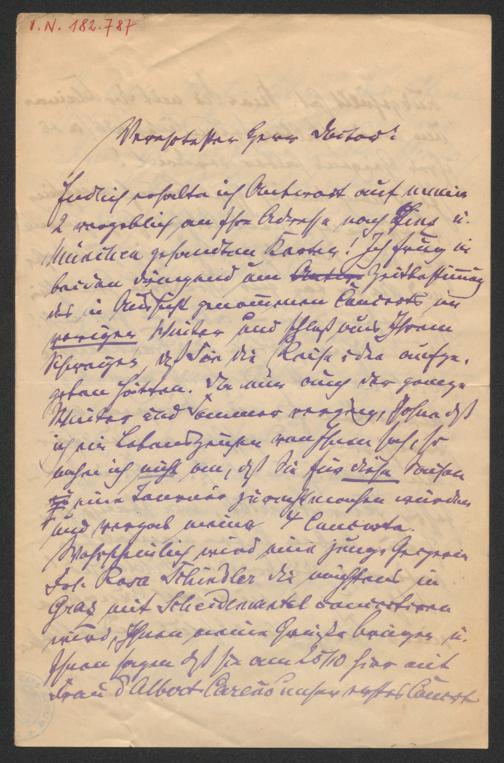 I.N. 182.787
Verehrtester Herr Doctor!
Endlich erhalte ich Antwort auf meine
2 vergeblich an Ihre Adresse nach Linz u.
München gesandten Karten! Ich frug in
beiden dringend um Zeitbestimmung
des in Aussicht genommenen Concerts im
vorigen Winter und schloß aus Ihrem
Schweigen, daß Sie die Reise idee aufge-
geben hätten. Da nun auch der ganze
Winter und Sommer verging, ohne daß
ich ein Lebenszeichen von Ihnen sah, so
nahm ich nicht an, daß Sie für diese Saison
eine Tournée zurechtmachen würden
und vergab meine 4 Concerte.
Wahrscheinlich wird eine junge Sängerin
Frl. Rosa Schindler die nächstens in
Graz mit Scheidemantel concertiren
wird, Ihnen meine Grüße bringen u.
Ihnen sagen daß sie am 25/10 hier mit
Frau d'Albert Carreño unser erstes Concert